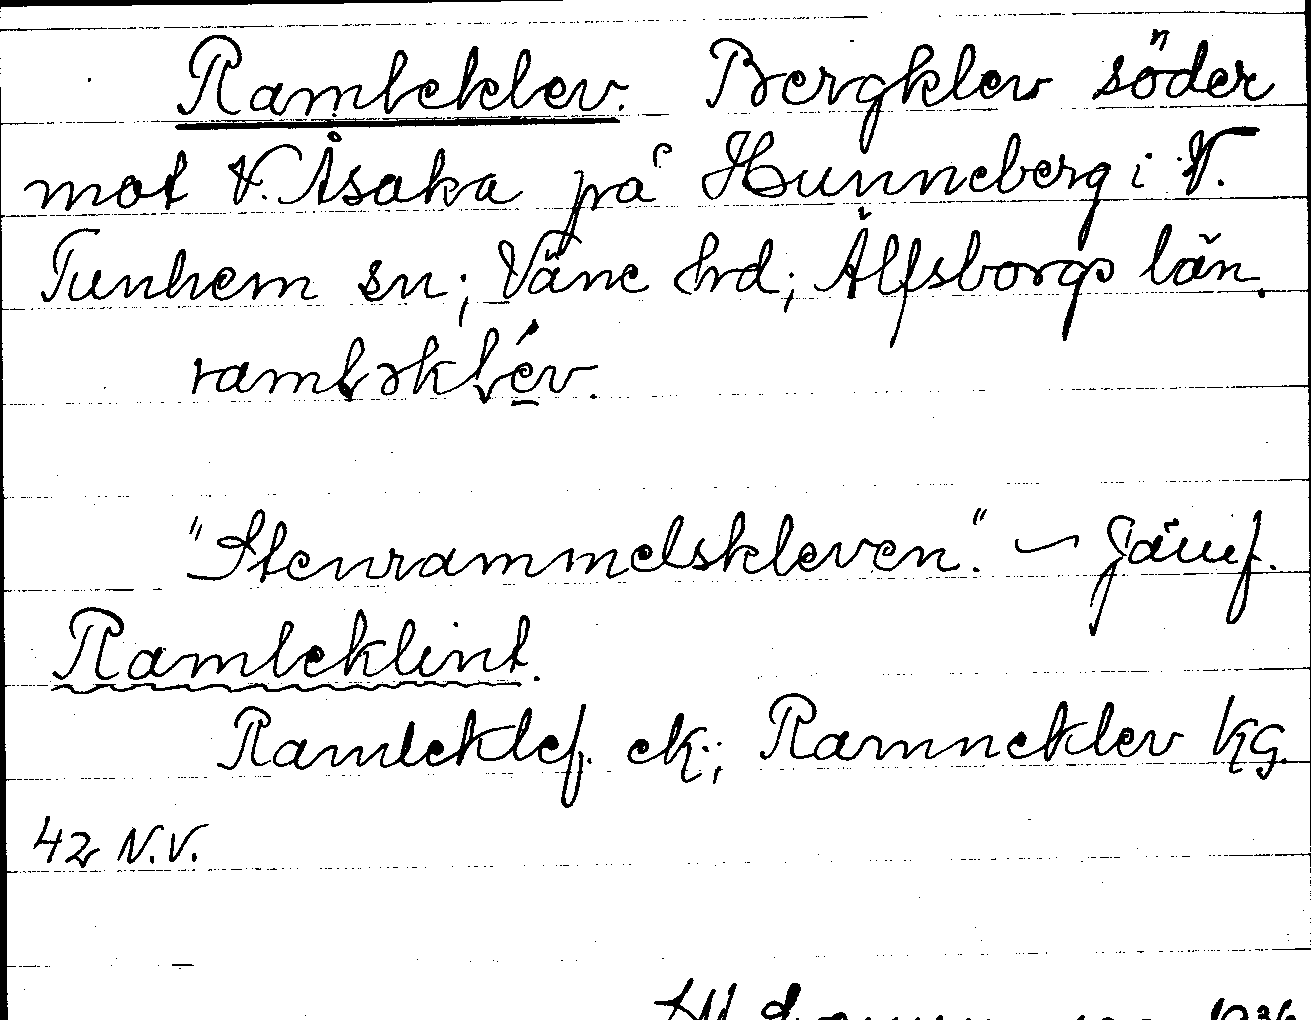 Rambleklev. Bergklev söder
mot V. Åsaka på Hunneberg i V.
Tunhem sn; Väne hrd; Älfsborgs län.
"Stenrammelskleven." — Jämf.
Rambleklint.
Ramleklef. ek.; Ramneklev kg.
42 N.V.